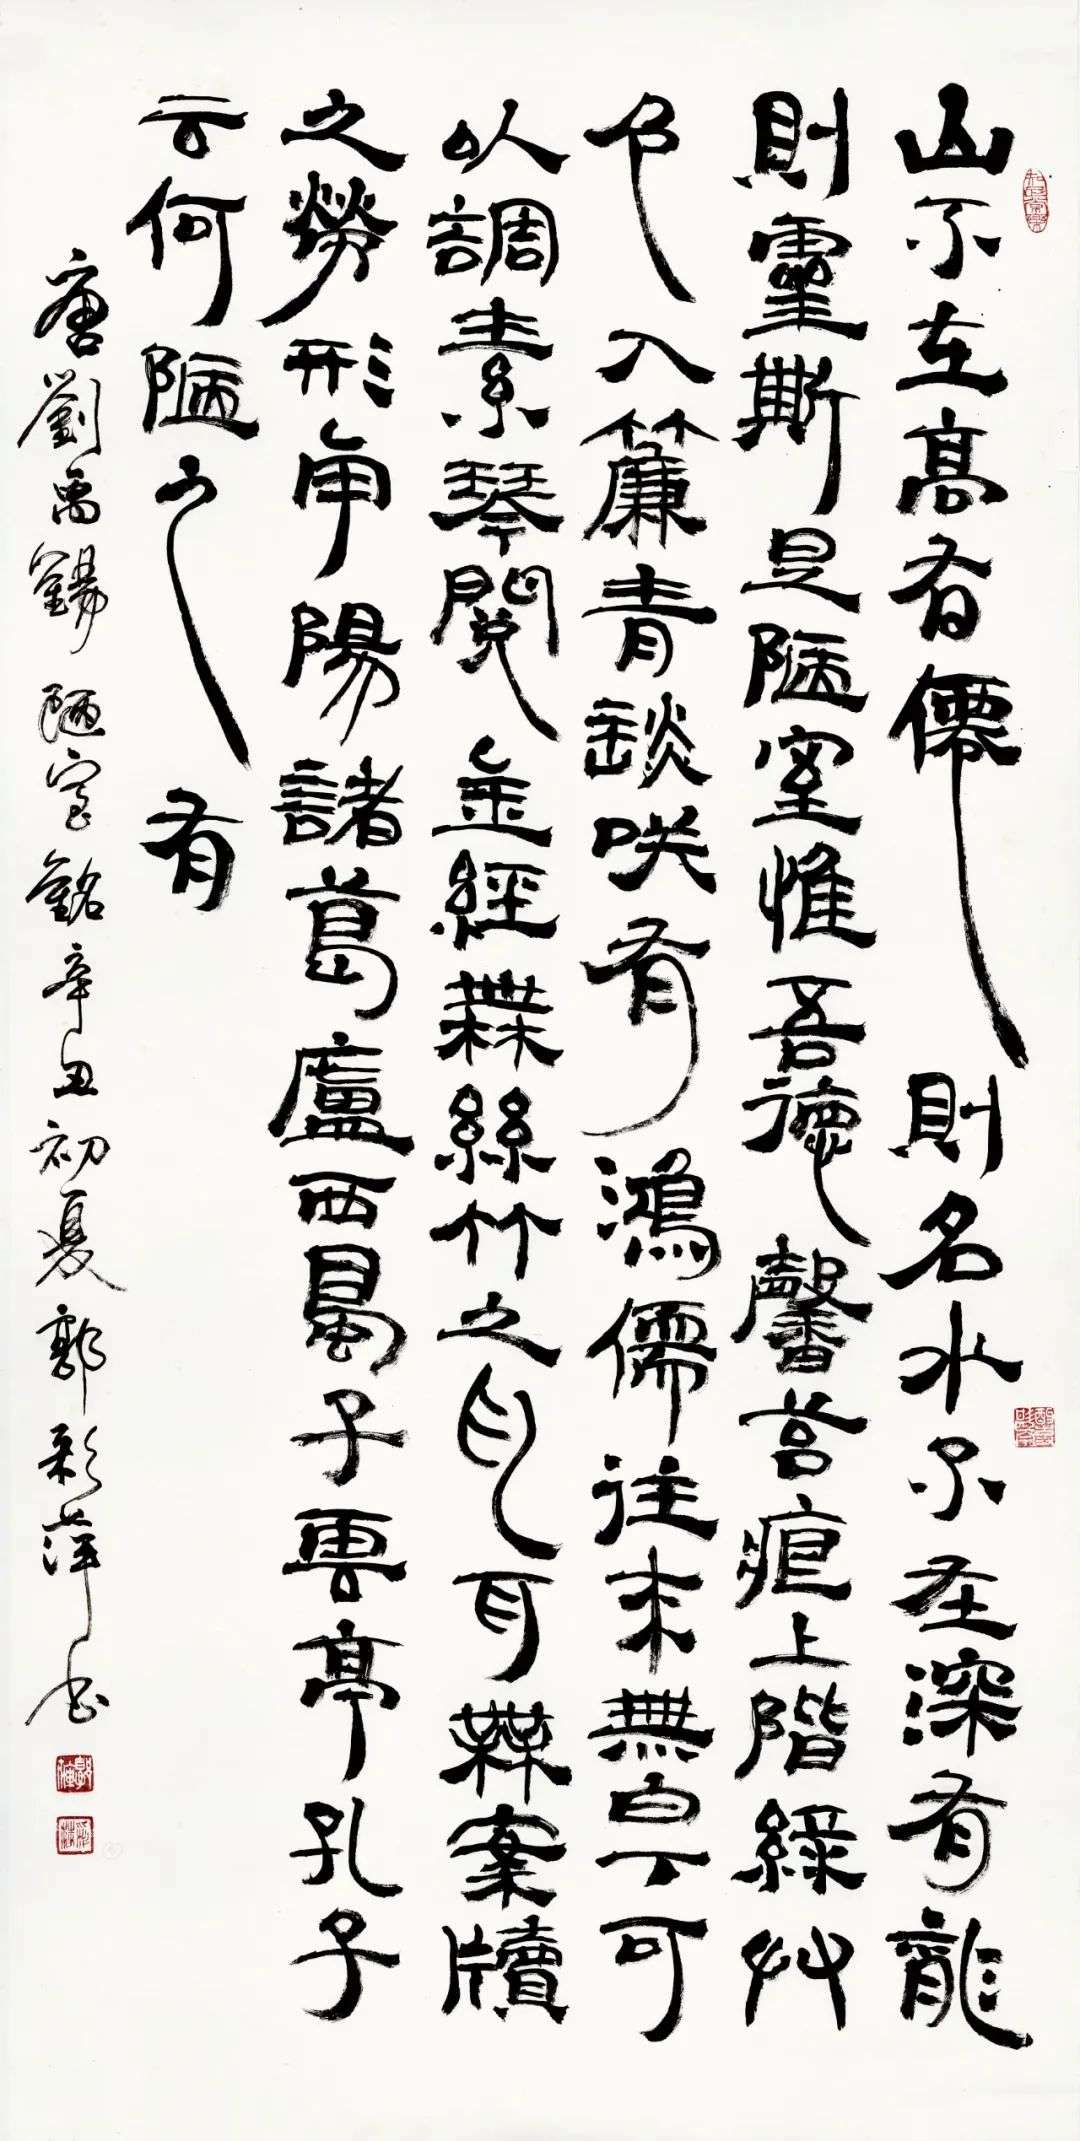 山不在高有僊則名水不在深有龍
則靈斯是陋室惟吾德馨苔痕上階綠艸
色入簾青談咲有鴻儒往來無白丁可
以調素琴閱金經無絲竹之亂耳無案牘
之勞形南陽諸葛廬西蜀子雲亭孔子
云何陋之有
唐劉禹錫陋室銘辛丑初夏郭彩萍书